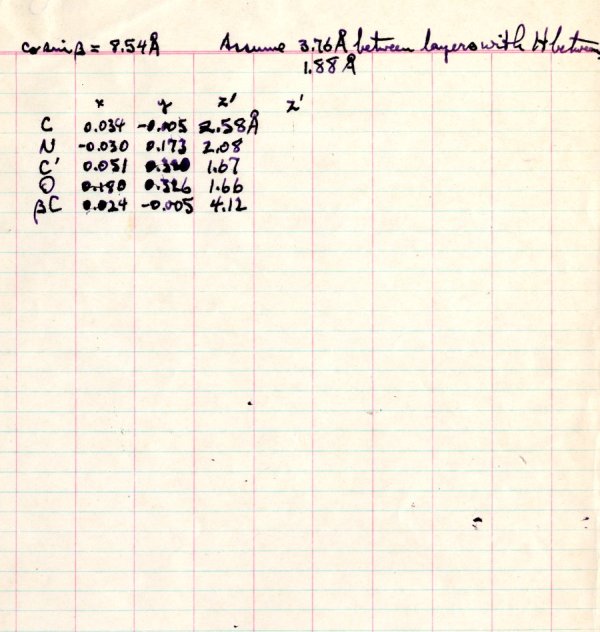 c₀ sin β = 8.54Å Assume 3.76Å between layers with H between
1.88Å
x y z' z'
C 0.034 -0.005 2.58Å
N -0.030 0.173 2.08
C' 0.051 1.67
O 0.180 0.326 1.66
βC 0.024 -0.005 4.12